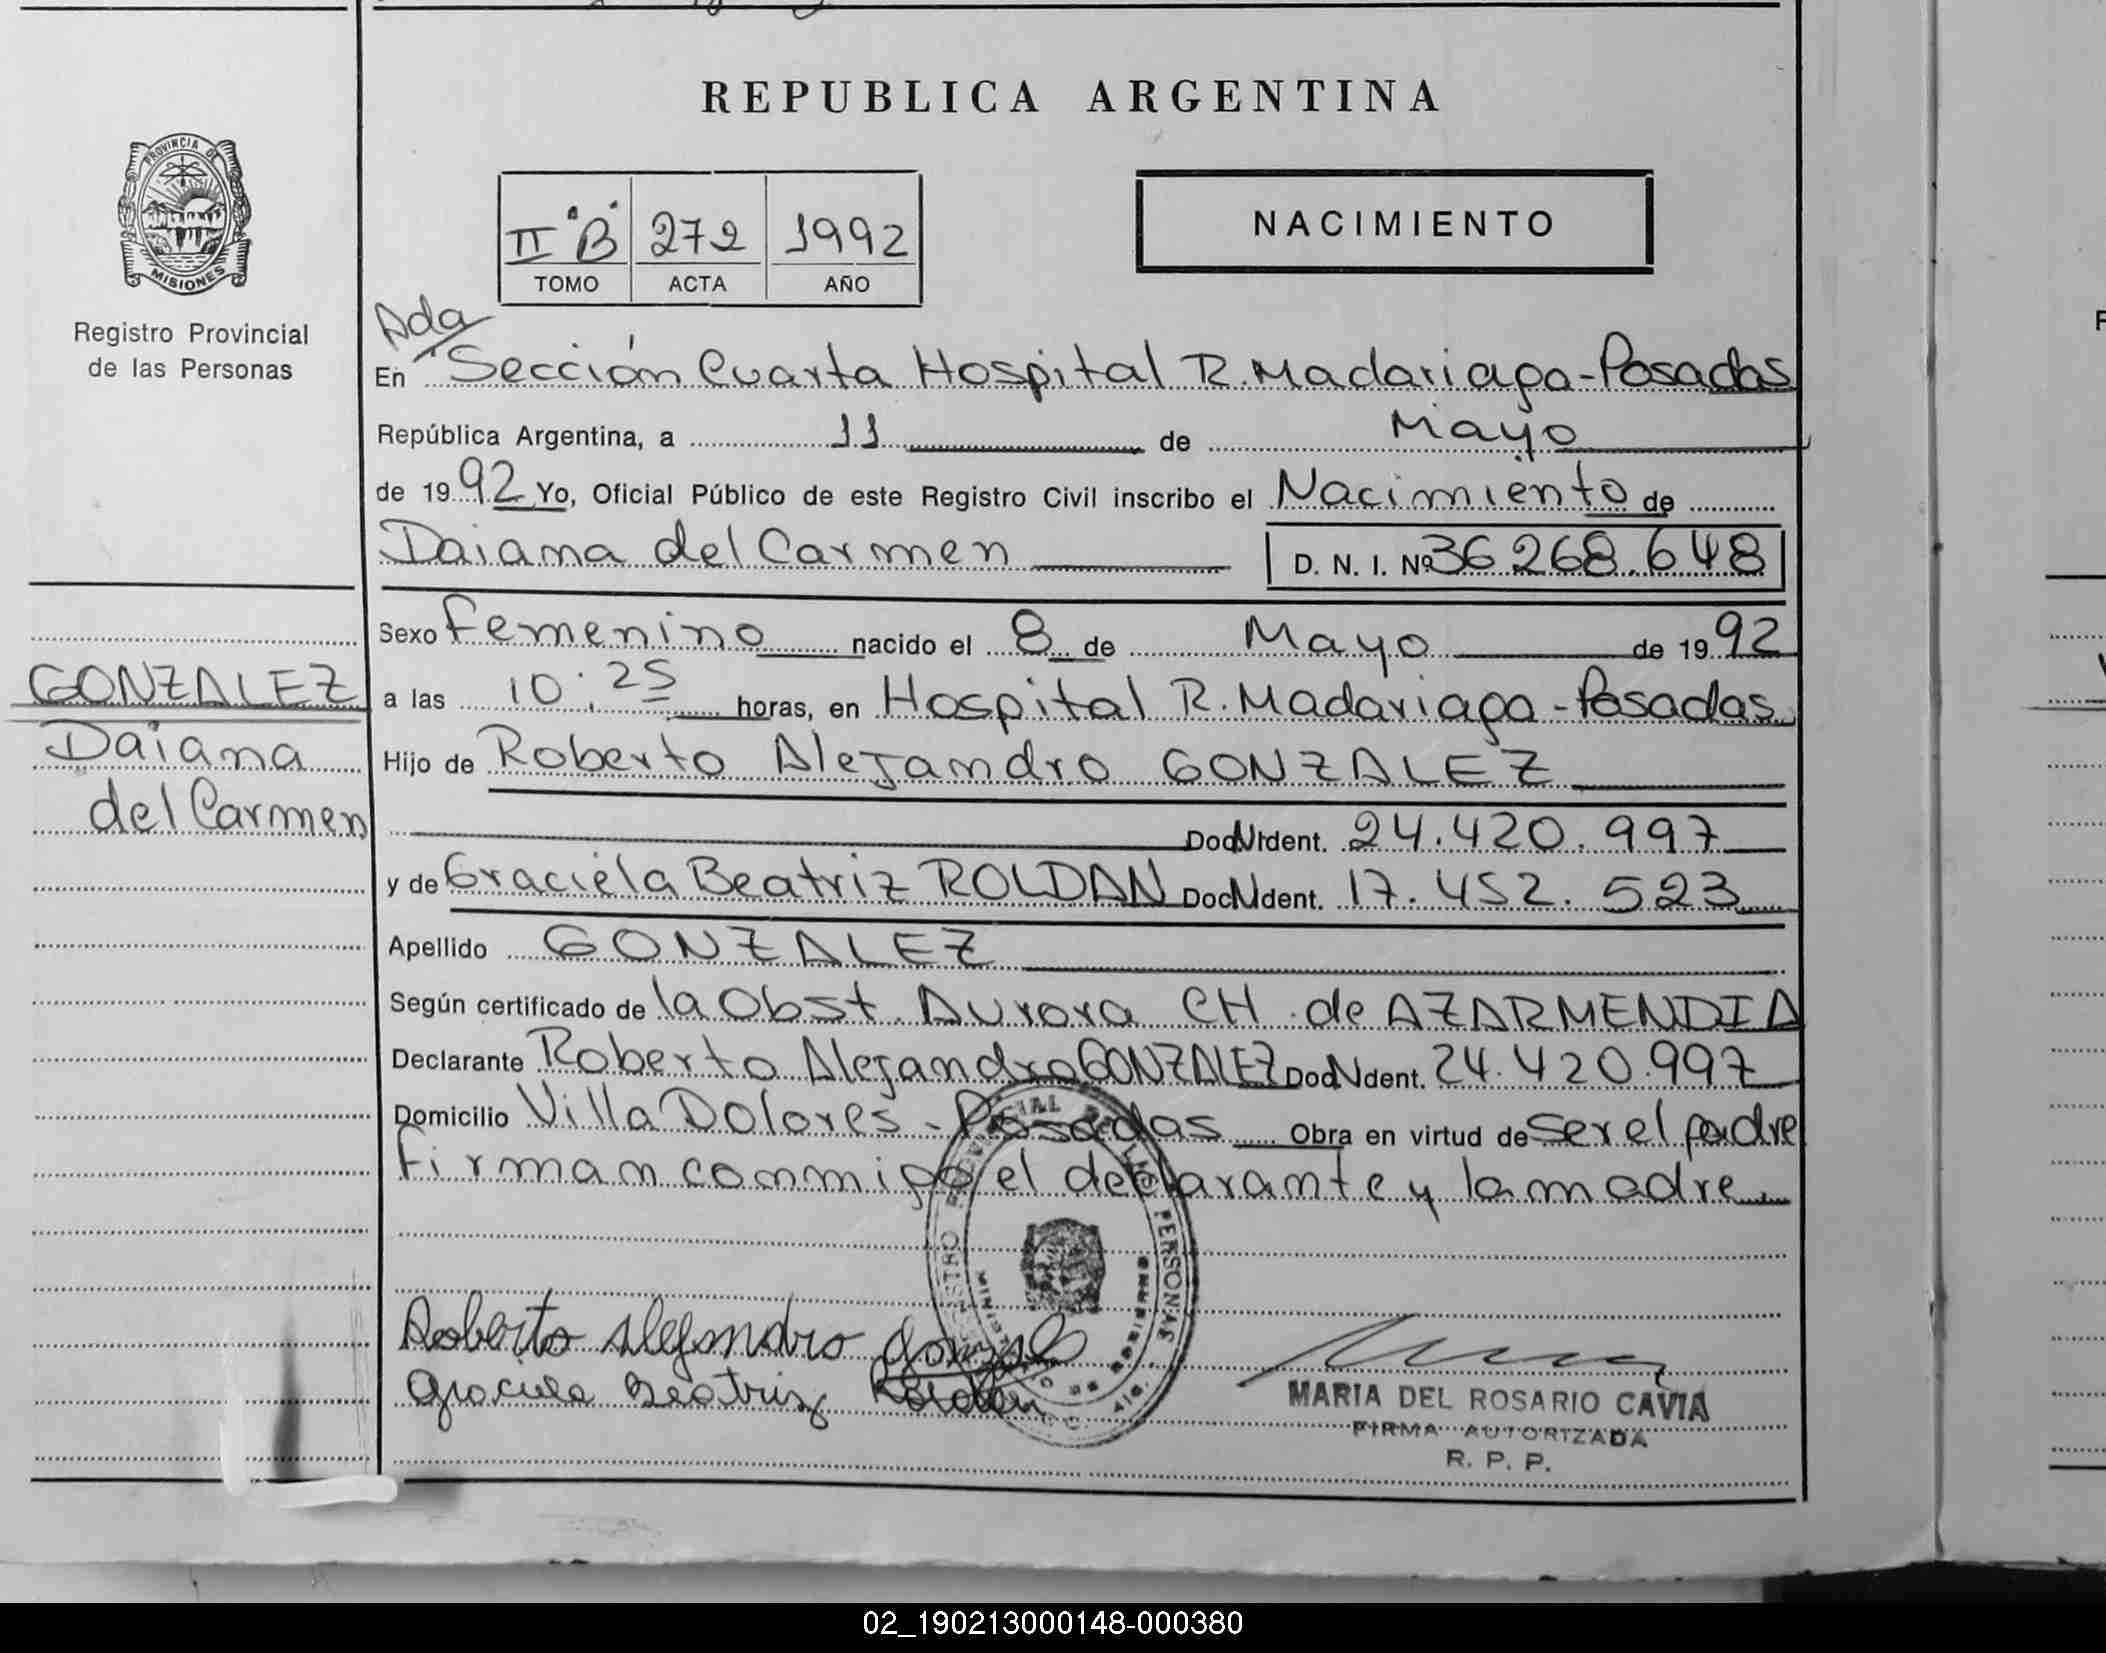 REPUBLICA ARGENTINA
PROVINCIA DE
MISIONES
Registro Provincial
de las Personas
II "B" 272 1992
TOMO ACTA AÑO
NACIMIENTO
Ada/
En Sección Cuarta Hospital R. Madariaga - Posadas
República Argentina, a 11 de Mayo
de 1992 Yo, Oficial Público de este Registro Civil inscribo el Nacimiento de
Daiana del Carmen D. N. I. Nº 36.268.648
Sexo Femenino nacido el 8 de Mayo de 1992
a las 10:25 horas, en Hospital R. Madariaga - Posadas
Hijo de Roberto Alejandro GONZALEZ
Doc N Ident. 24.420.997
y de Graciela Beatriz ROLDAN Doc N Ident. 17.452.523
Apellido GONZALEZ
Según certificado de la Obst. Aurora CH. de AZARMENDIA
Declarante Roberto Alejandro GONZALEZ Doc N Ident. 24.420.997
Domicilio Villa Dolores - Posadas Obra en virtud de ser el padre
Firman conmigo el declarante y la madre
GONZALEZ
Daiana
del Carmen
Roberto Alejandro Gonzalez
Graciela Beatriz Roldan
MARIA DEL ROSARIO CAVIA
FIRMA AUTORIZADA
R. P. P.
02_190213000148-000380